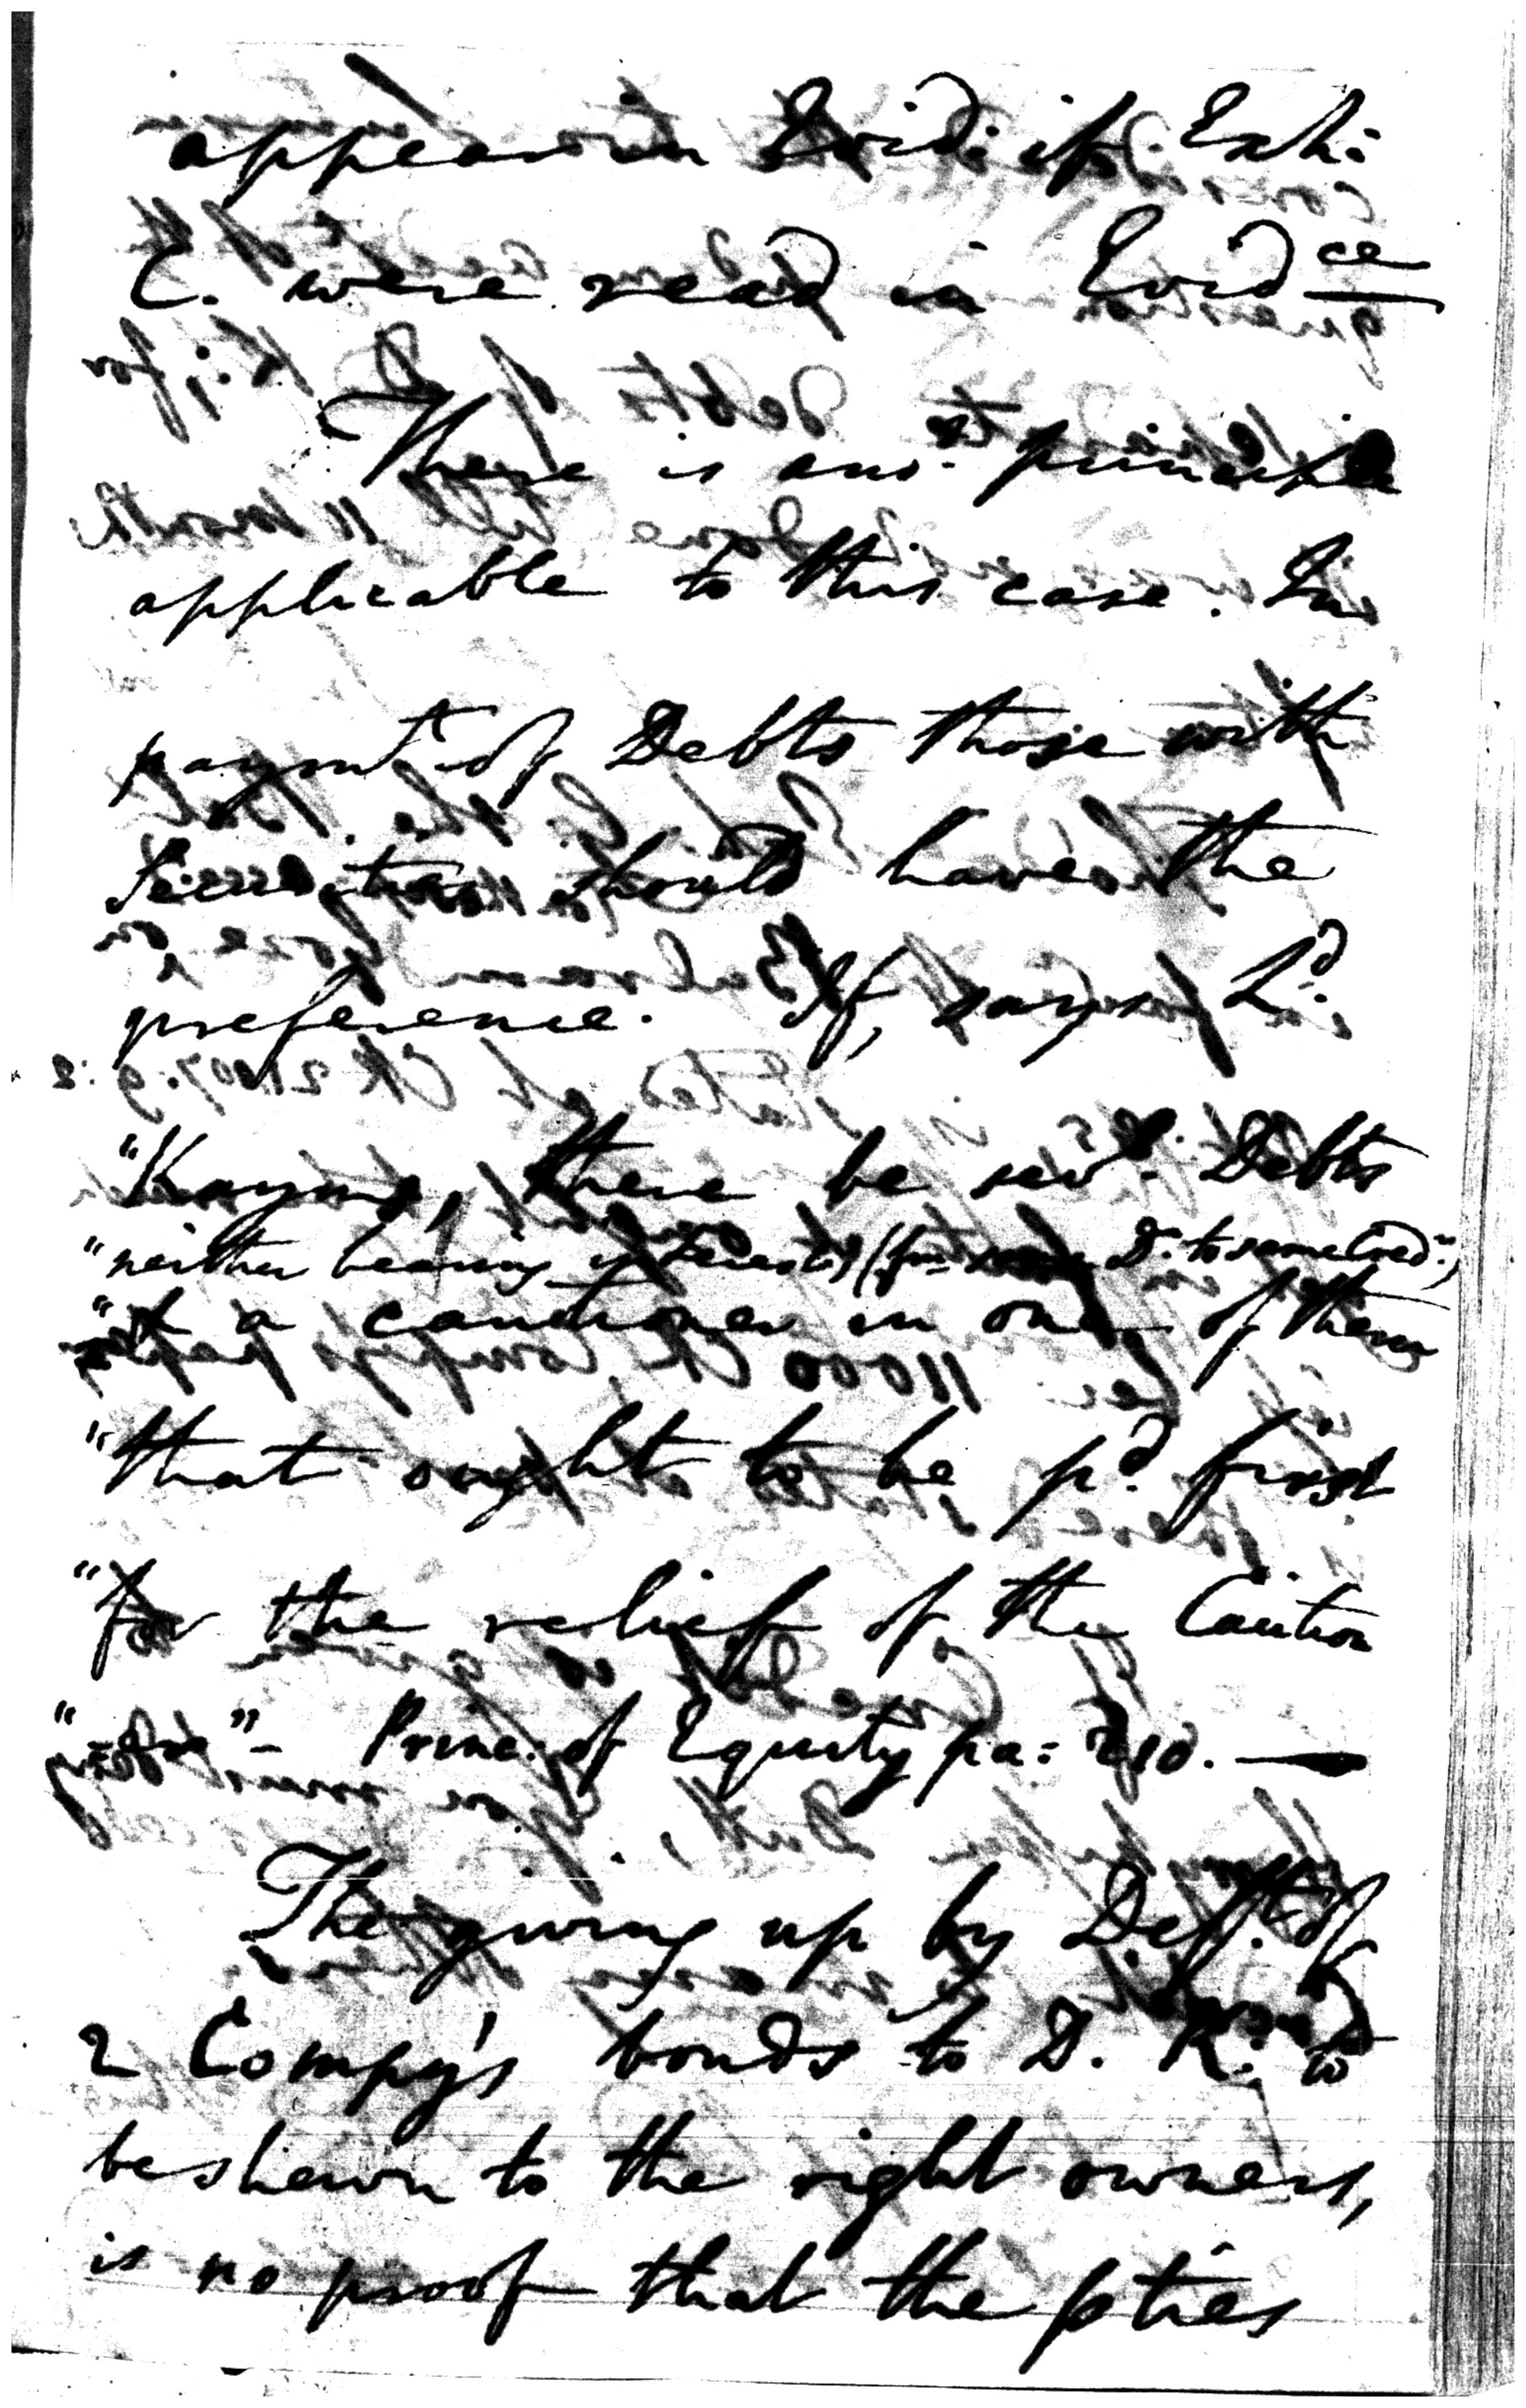 appear in Evid: if Exh:
C. were read in Evid ce
There is anor. principle
applicable to this case. In
paymt. of Debts those with
Securities should have the
preference. If, says Ld.
"Kayms, there be sevl. Debts
"neither bearing interest, (fm. same Dr. to same Cred.r,)
"& a cautioner in one of them
"that ought to be pd. first
"for the relief of the Caution
" " - Princ. of Equity pa: 210. —
The giving up by Deft. of
2 Compy's bonds to D. K: to
be shewn to the right owners,
is no proof that the pties